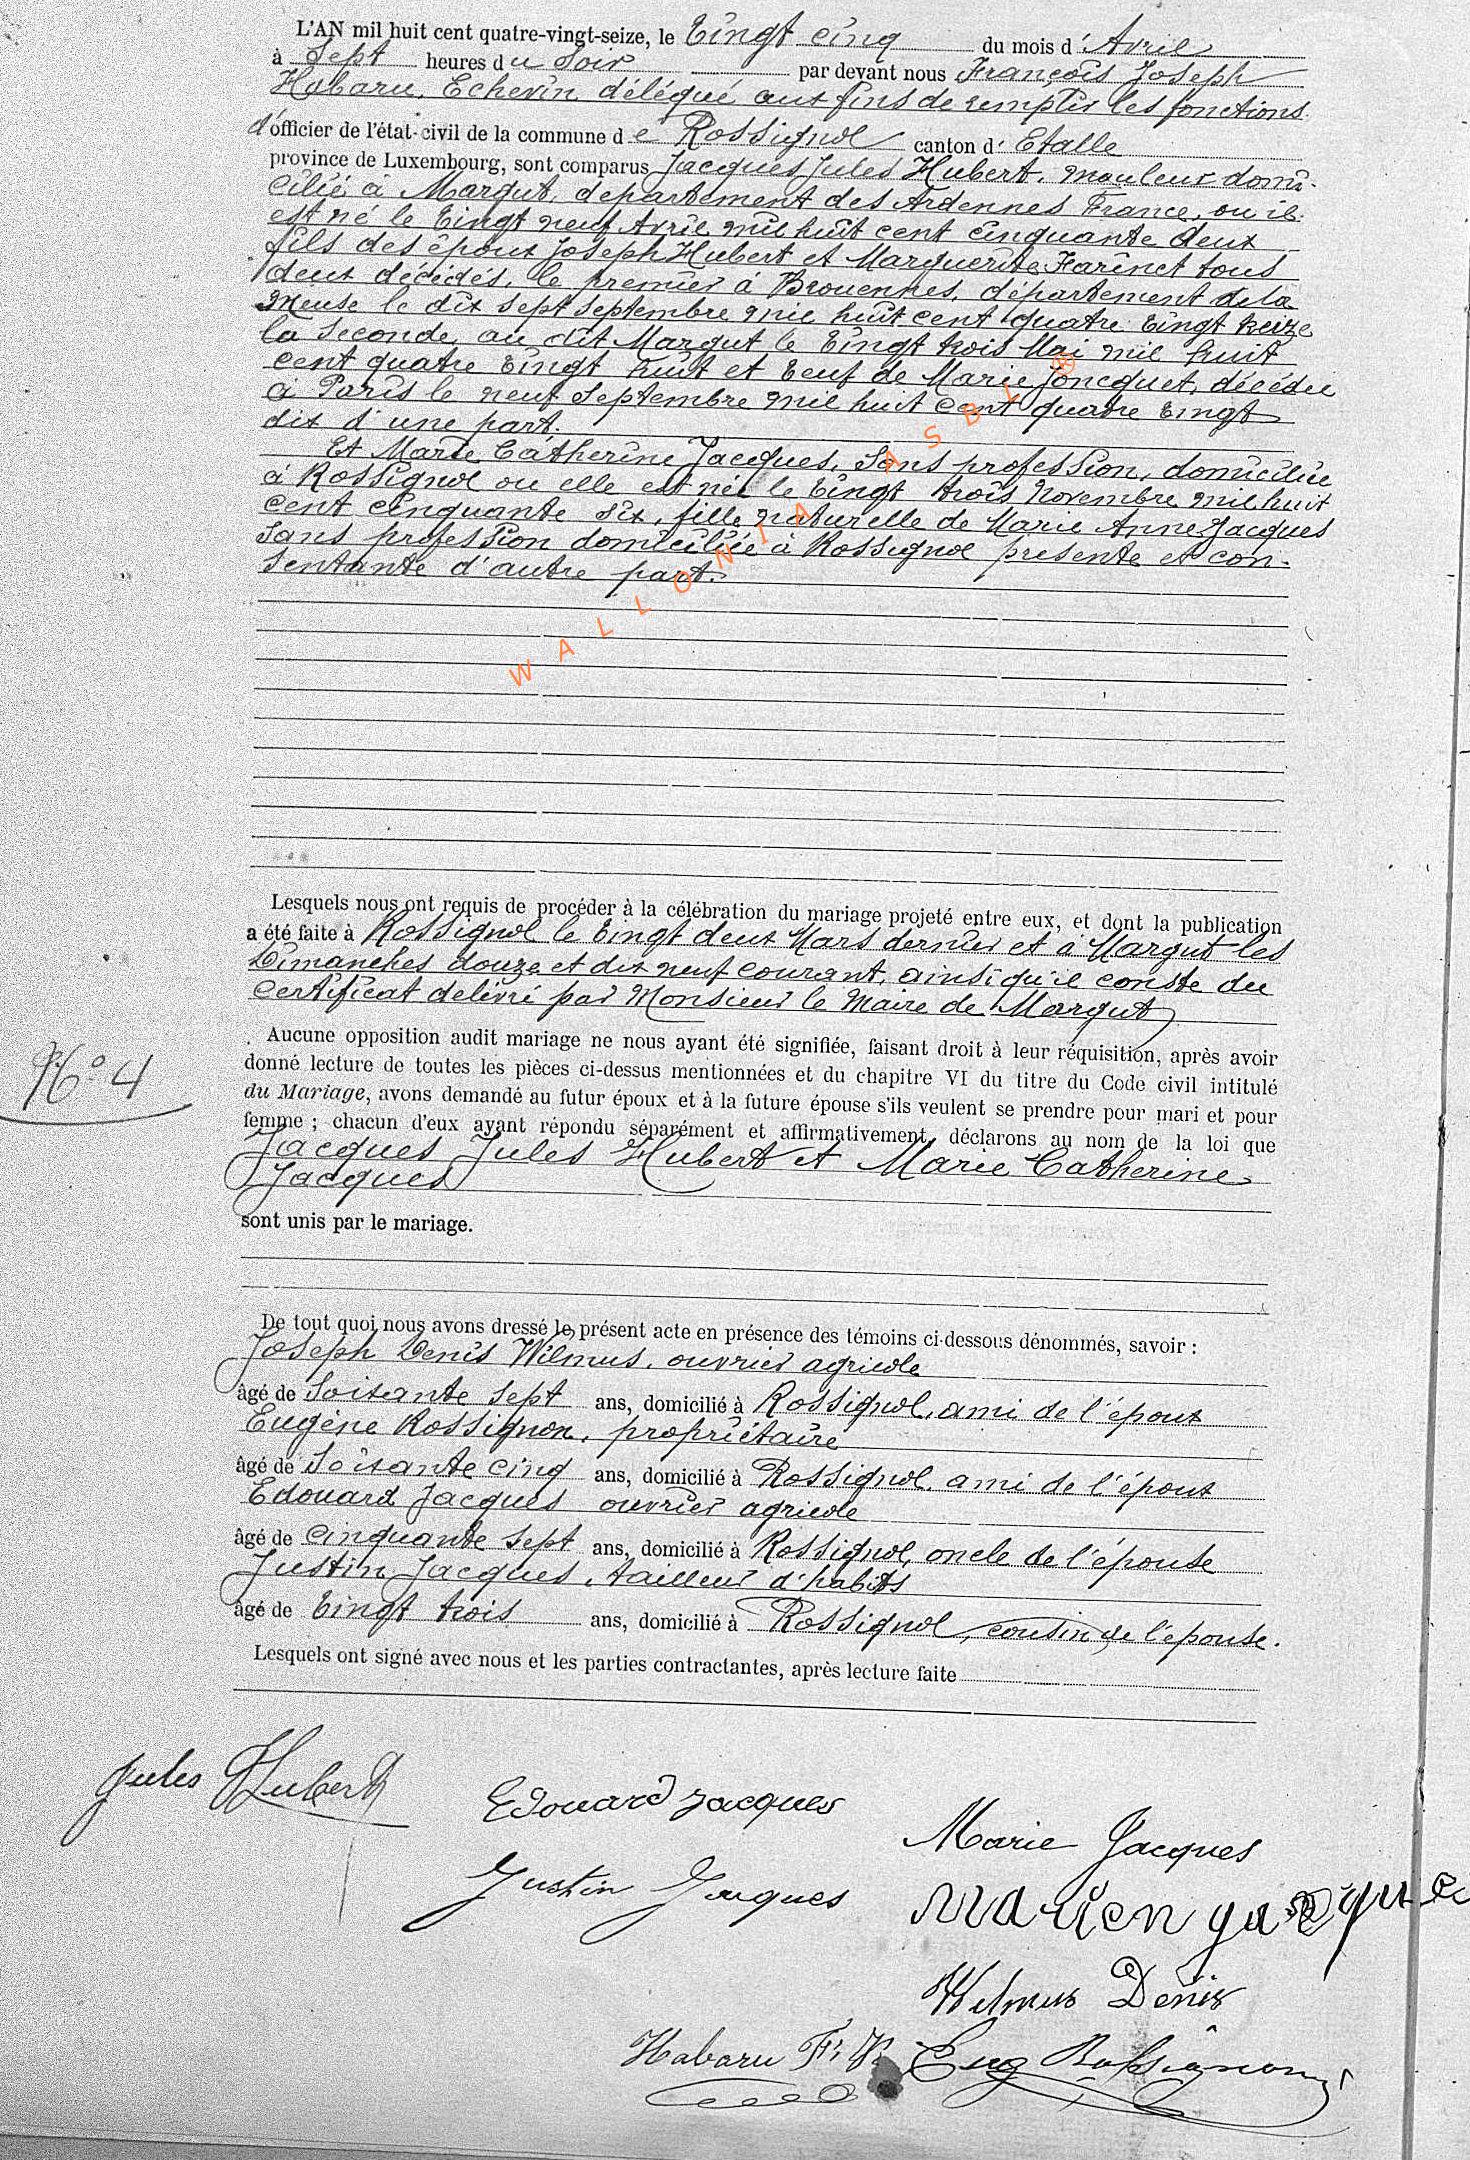 L'AN mil huit cent quatre-vingt-seize, le Vingt cinq du mois d'Avril
à Sept heures du Soir par devant nous François Joseph
Habaru, Echevin délégué aux fins de remplir les fonctions
d'officier de l'état-civil de la commune de Rossignol canton d'Etalle
province de Luxembourg, sont comparus Jacques Jules Hubert, mouleur domi-
cilié à Margut, département des Ardennes France, ou il
est né le Vingt neuf Avril mil huit cent cinquante deux
fils des époux Joseph Hubert et Marguerite Harinet tous
deux décédés, le premier à Brouennes, département de la
Meuse le dix sept Septembre mil huit cent quatre Vingt treize
la Seconde au dit Margut le Vingt trois Mai mil huit
cent quatre Vingt huit et Veuf de Marie Joncquet, décédée
à Paris le neuf Septembre mil huit cent quatre Vingt
dix d'une part.
Et Marie Catherine Jacques, Sans profession, domiciliée
à Rossignol ou elle est née le Vingt trois Novembre mil huit
cent cinquante six, fille naturelle de Marie Anne Jacques
Sans profession domiciliée à Rossignol présente et con-
sentante d'autre part.
WALLONIA ASBL ®
Lesquels nous ont requis de procéder à la célébration du mariage projeté entre eux, et dont la publication
a été faite à Rossignol le Vingt deux Mars dernier et à Margut les
Dimanches douze et dix neuf courant, ainsi qu'il conste du
Certificat délivré par Monsieur le Maire de Margut
Aucune opposition audit mariage ne nous ayant été signifiée, faisant droit à leur réquisition, après avoir
donné lecture de toutes les pièces ci-dessus mentionnées et du chapitre VI du titre du Code civil intitulé
du Mariage, avons demandé au futur époux et à la future épouse s'ils veulent se prendre pour mari et pour
femme ; chacun d'eux ayant répondu séparément et affirmativement, déclarons au nom de la loi que
N° 4
Jacques Jules Hubert et Marie Catherine
Jacques
sont unis par le mariage.
De tout quoi nous avons dressé le présent acte en présence des témoins ci-dessous dénommés, savoir :
Joseph Denis Wilmus, ouvrier agricole
âgé de Soixante sept ans, domicilié à Rossignol, ami de l'époux
Eugène Rossignon, propriétaire
âgé de Soixante cinq ans, domicilié à Rossignol, ami de l'époux
Edouard Jacques ouvrier agricole
âgé de Cinquante sept ans, domicilié à Rossignol, oncle de l'épouse
Justin Jacques, tailleur d'habits
âgé de Vingt trois ans, domicilié à Rossignol, cousin de l'épouse.
Lesquels ont signé avec nous et les parties contractantes, après lecture faite
Jules Hubert
Edouard Jacques
Marie Jacques
Justin Jacques
Wilmus Denis
Habaru Eug Rossignon